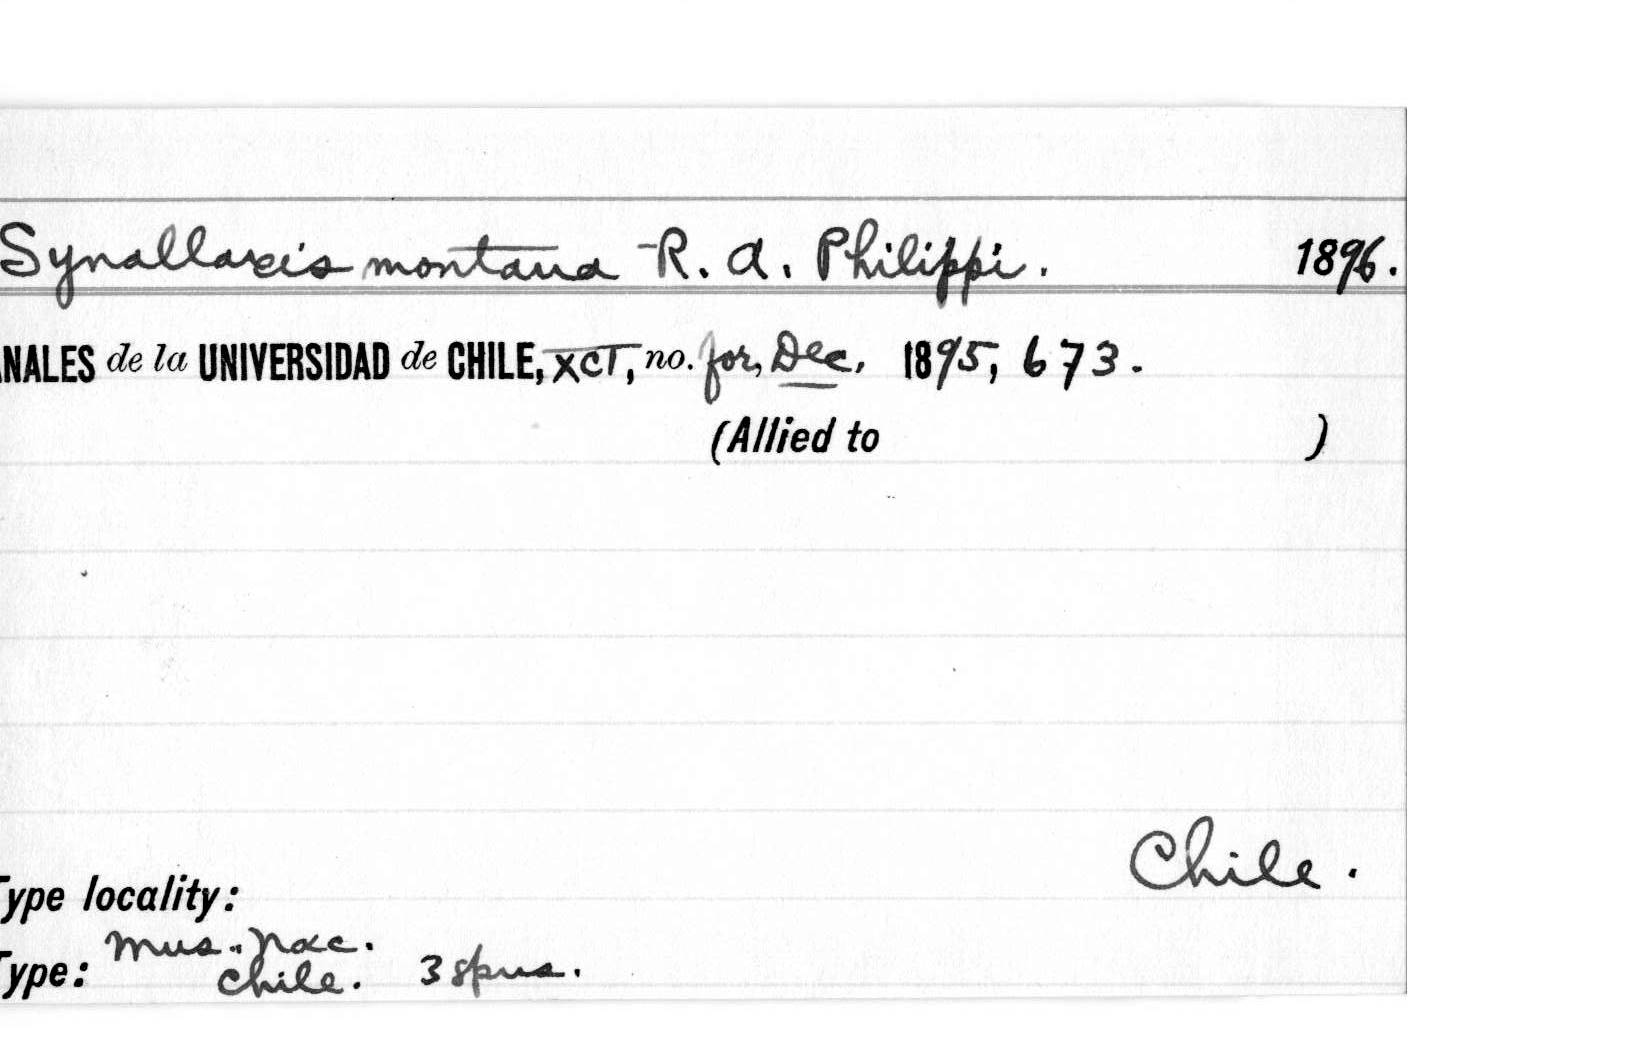 Synallaxis montana R. A. Philippi. 1896.
ANALES de la UNIVERSIDAD de CHILE, XCI, no. for, Dec, 1895, 673.
(Allied to )
Chile.
Type locality:
Mus. Nac.
Type: Chile. 3 spns.